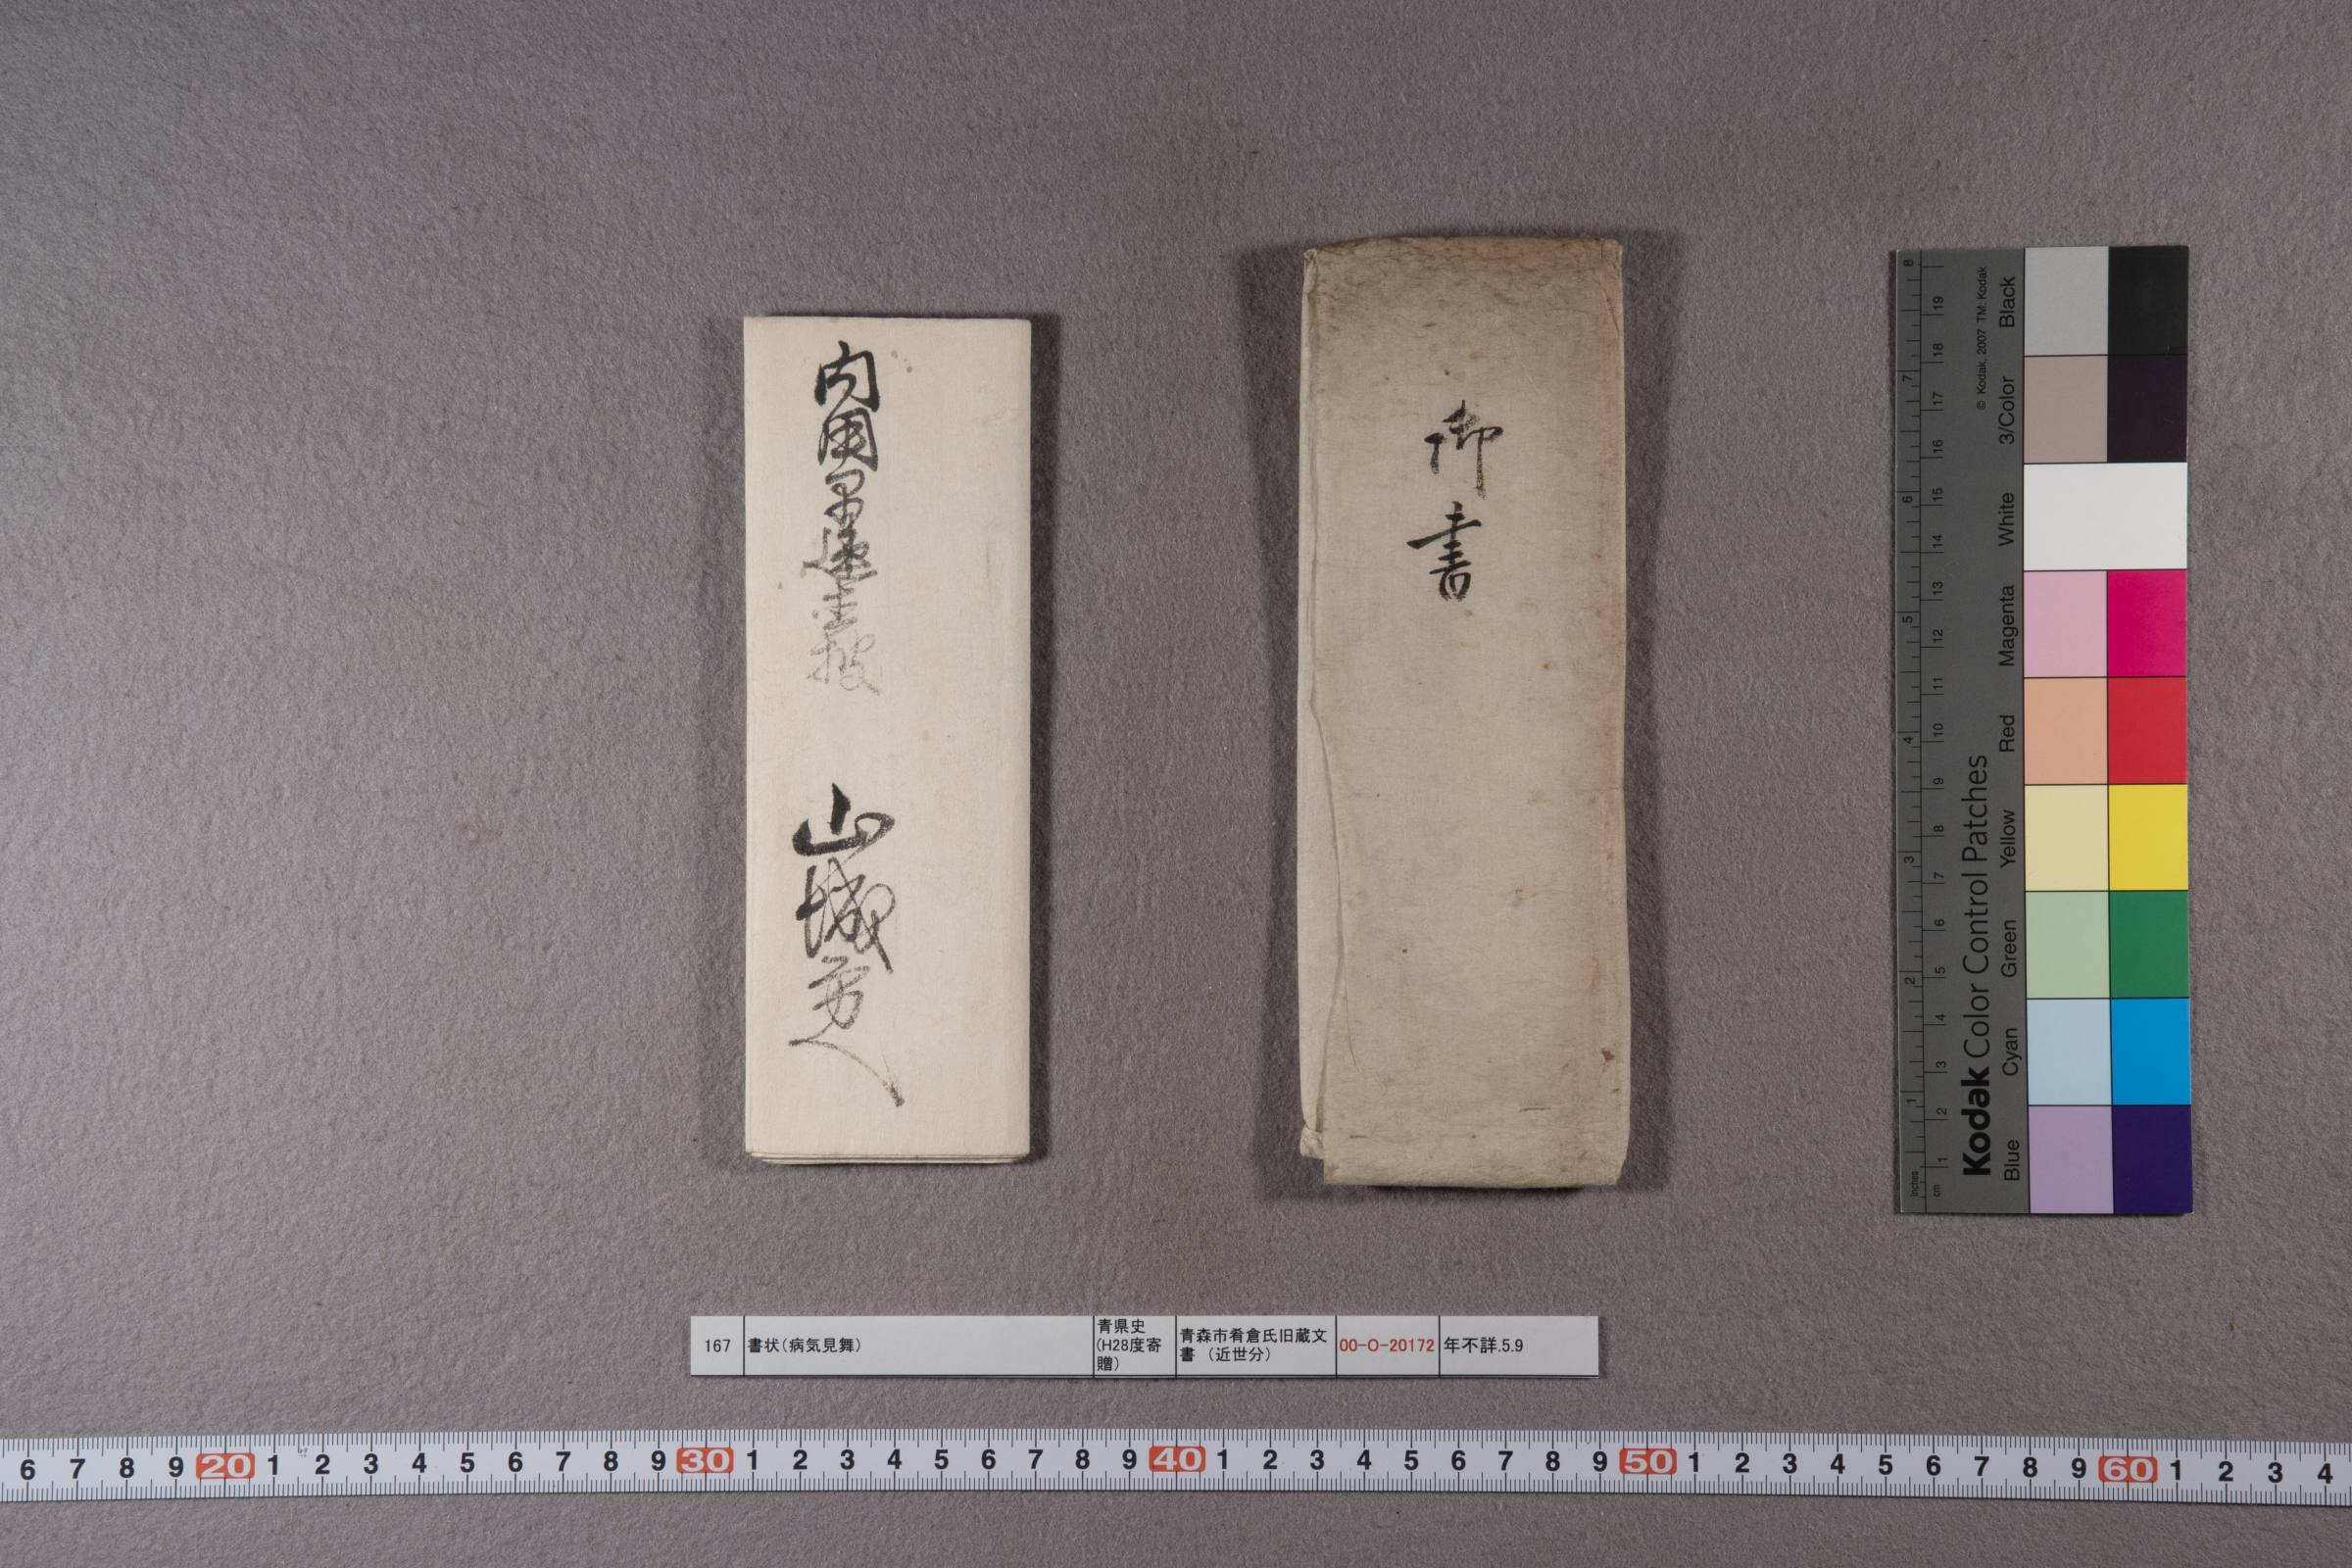 御書
内用早速主披
山城守
167
書状(病気見舞)
青県史
(H28度寄
贈)
青森市肴倉氏旧蔵文
書 (近世分)
00-O-20172
年不詳.5.9
Kodak Color Control Patches
© Kodak, 2007 TM: Kodak
Blue Cyan Green Yellow Red Magenta White 3/Color Black
inches 1 2 3 4 5 6 7 8
cm 1 2 3 4 5 6 7 8 9 10 11 12 13 14 15 16 17 18 19
6 7 8 9 20 1 2 3 4 5 6 7 8 9 30 1 2 3 4 5 6 7 8 9 40 1 2 3 4 5 6 7 8 9 50 1 2 3 4 5 6 7 8 9 60 1 2 3 4